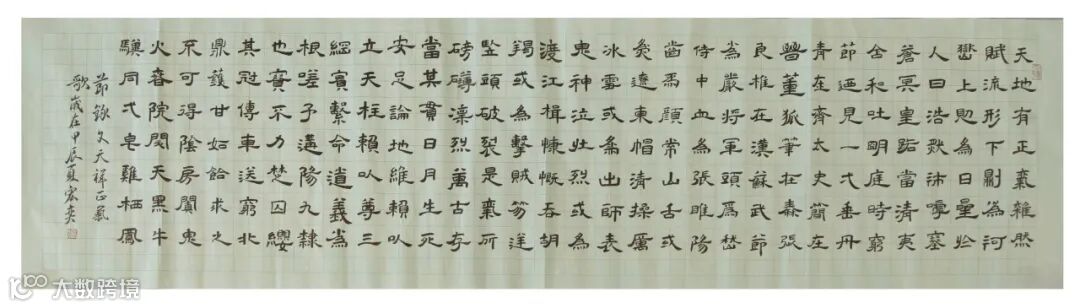 天地有正氣雜然
賦流形下則為河
嶽上則為日星於
人曰浩然沛乎塞
蒼冥皇路當清夷
含和吐明庭時窮
節迺見一一垂丹
青在齊太史簡在
晉董狐筆在秦張
良椎在漢蘇武節
為嚴將軍頭為嵇
侍中血為張睢陽
齒為顏常山舌或
為遼東帽清操厲
冰雪或為出師表
鬼神泣壯烈或為
渡江楫慷慨吞胡
羯或為擊賊笏逆
豎頭破裂是氣所
磅礴凜烈萬古存
當其貫日月生死
安足論地維賴以
立天柱賴以尊三
綱實繫命道義為
根嗟予遘陽九隸
也實不力楚囚纓
其冠傳車送窮北
鼎鑊甘如飴求之
不可得陰房闃鬼
火春院閟天黑牛
驥同一皂雞棲鳳
節錄文天祥正氣
歌歲在甲辰夏宏
大数跨境